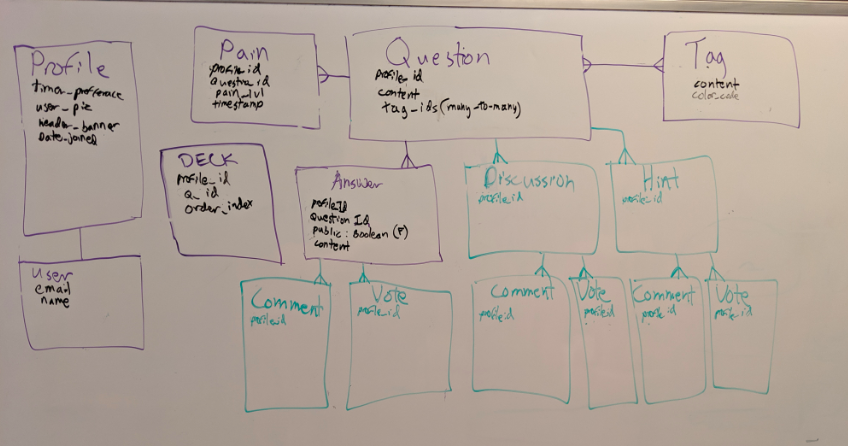 Profile
timer_prefference
user_pic
header_banner
Date_joined
user
email
name
Pain
profile_id
question_id
pain_lvl
timestamp
Question
profile_id
content
tag_ids (many_to_many)
Tag
content
color_code
DECK
profile_id
Q_id
order_index
Answer
profileId
Question ID
public: Boolean (F)
content
Discussion
profile_id
Hint
profile_id
Comment
profile_id
Vote
profile_id
Comment
profile_id
Vote
profile_id
Comment
profile_id
Vote
profile_id